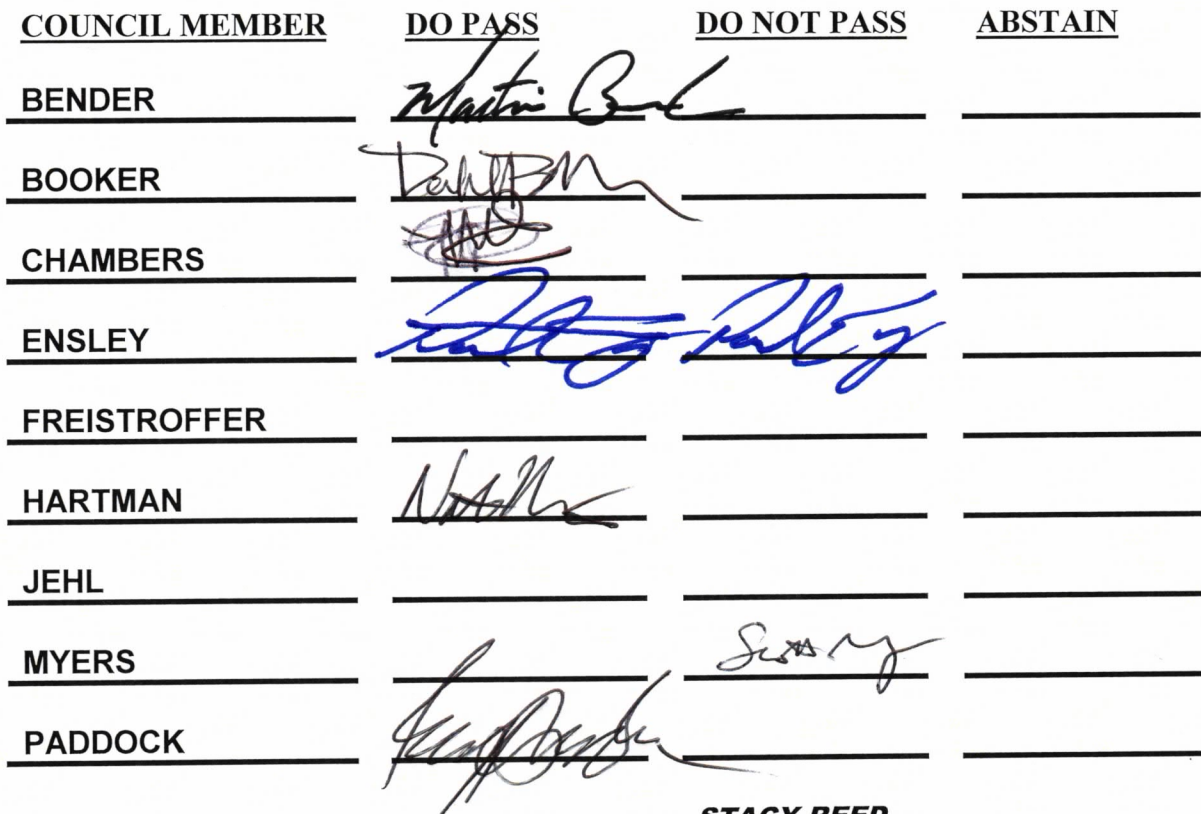 COUNCIL MEMBER DO PASS DO NOT PASS ABSTAIN
BENDER Martin
BOOKER
CHAMBERS
ENSLEY
FREISTROFFER
HARTMAN
JEHL
MYERS Scott
PADDOCK
STACY REED